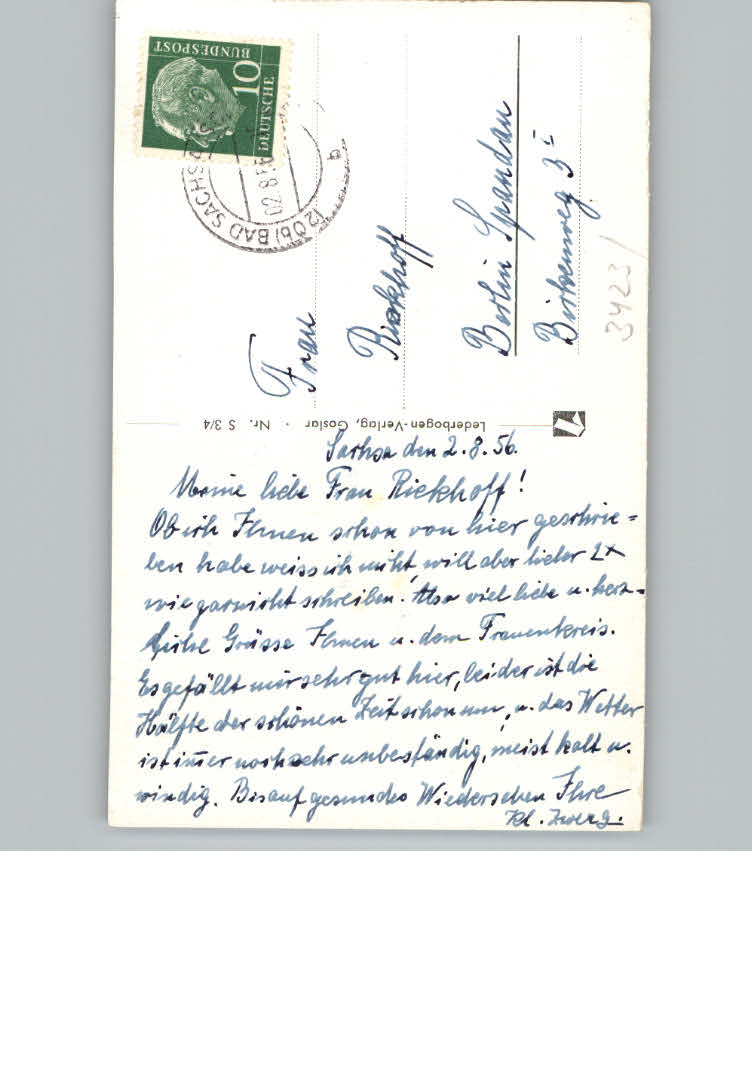 DEUTSCHE
BUNDESPOST
10
(20b) BAD SACHSA
02.8.56
b
Frau
Rickhoff
Berlin Spandau
Birkenweg 3 I
3423/
Lederbogen-Verlag, Goslar · Nr. S 3/4
Sachsa den 2.8.56.
Meine liebe Frau Rickhoff!
Ob ich Ihnen schon von hier geschrie=
ben habe weiss ich nicht, will aber lieber 2x
wie garnicht schreiben. Also viel liebe u. herz=
liche Grüsse Ihnen u. dem Frauenkreis.
Es gefällt mir sehr gut hier, leider ist die
Hälfte der schönen Zeit schon um, u. das Wetter
ist im̄er noch sehr unbeständig, meist kalt u.
windig. Bis auf gesundes Wiedersehen Ihre
Kl. Zwerg.